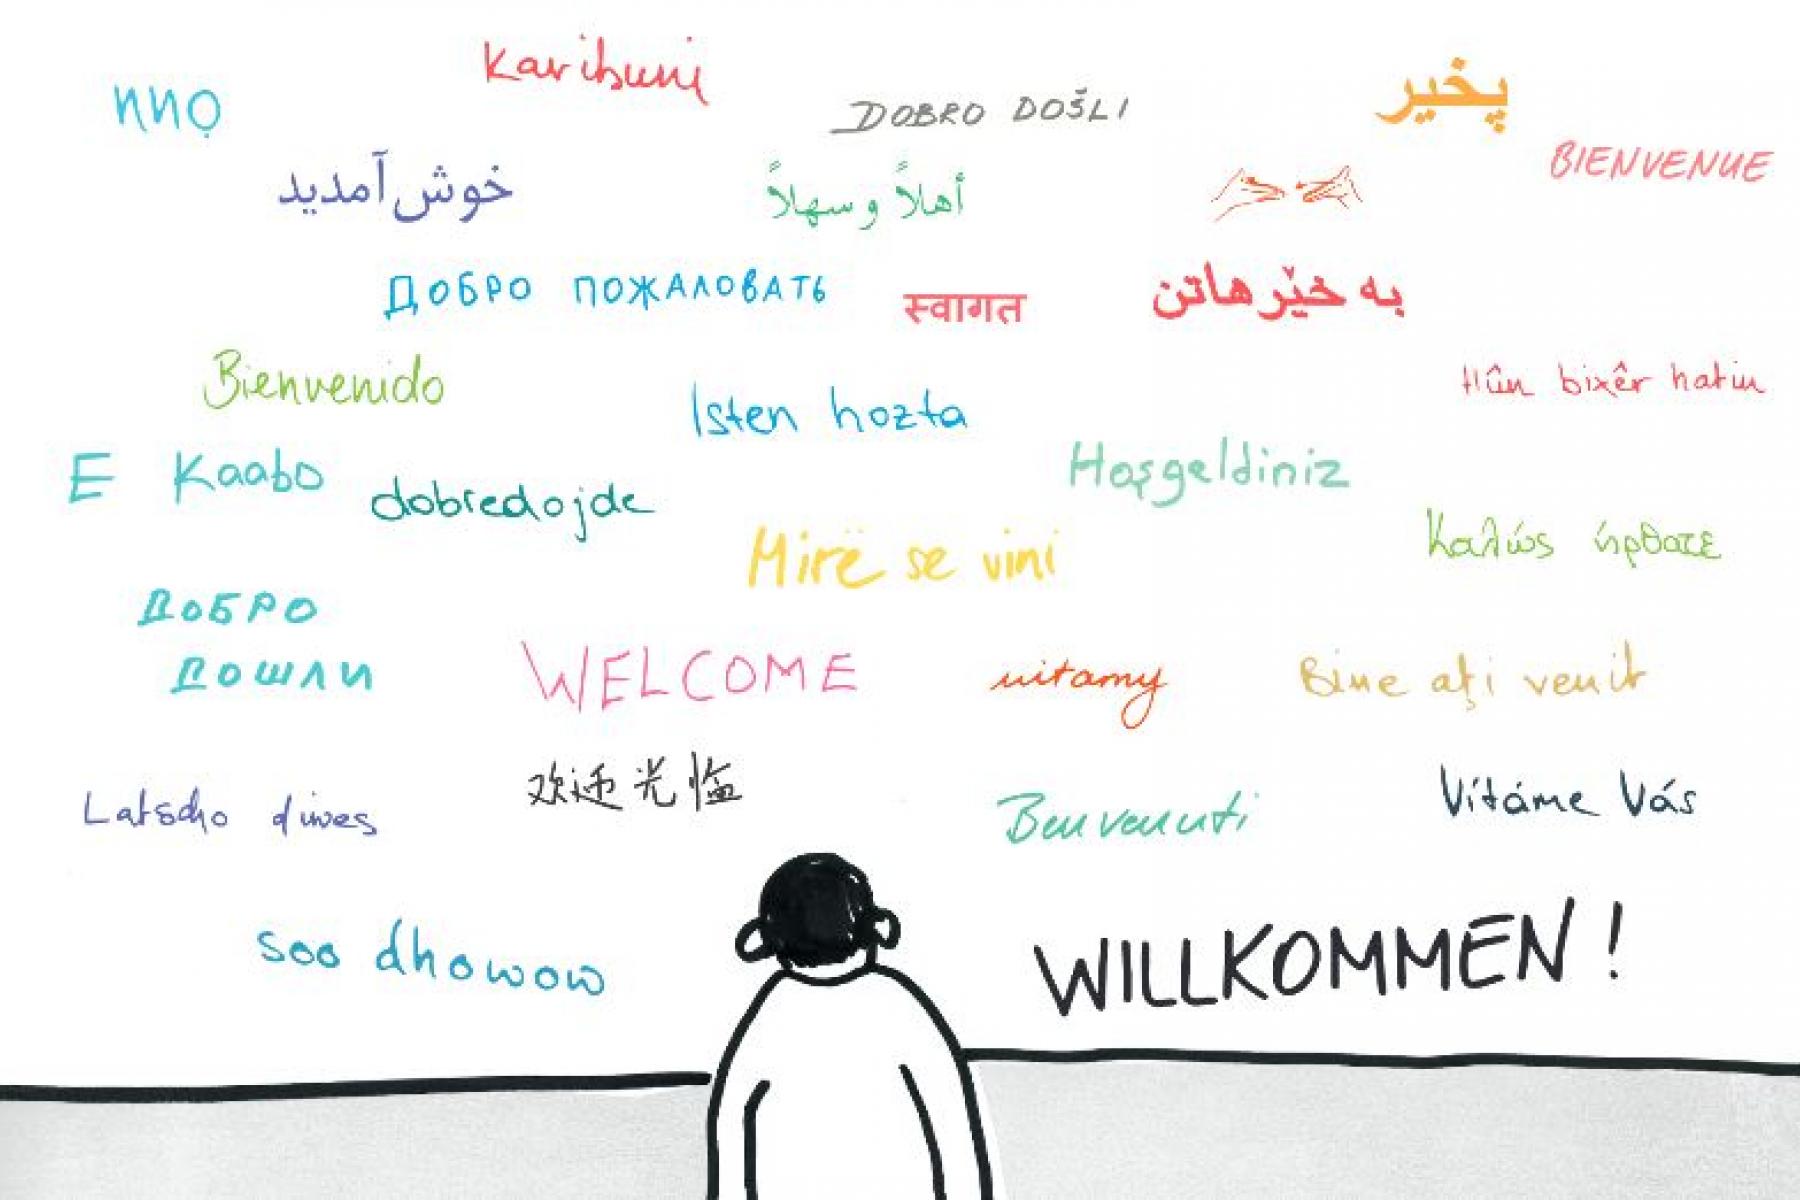 Karibuni
NNỌ
DOBRO DOŠLI
پخير
BIENVENUE
خوش آمدید
أهلاً و سهلاً
ДОБРО ПОЖАЛОВАТЬ
स्वागत
به خێر هاتن
Bienvenido
Isten hozta
Hûn bixêr hatin
E Kaabo
dobredojde
Hoşgeldiniz
Mirë se vini
Καλώς ήρθατε
ДОБРО
ДОШЛИ
WELCOME
witamy
Bine aţi venit
Latscho diwes
欢迎光临
Benvenuti
Vítáme Vás
soo dhowow
WILLKOMMEN!